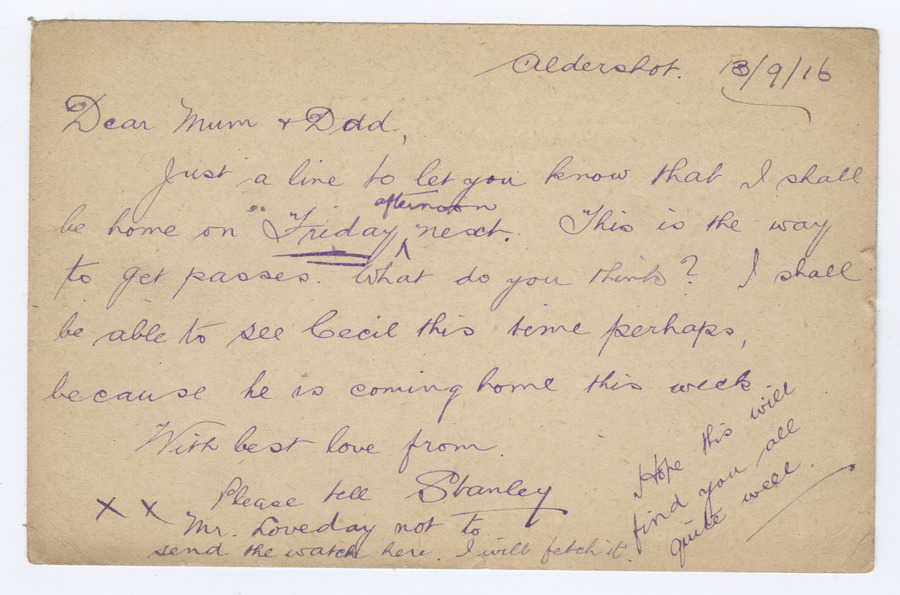 Aldershot. 13/9/16
Dear Mum & Dad,
Just a line to let you know that I shall
be home on Friday afternoon next. This is the way
to get passes. What do you think? I shall
be able to see Cecil this time perhaps,
because he is coming home this week
With best love from.
Stanley
x x
Please tell
Mr. Loveday not to
send the watch here. I will fetch it.
Hope this will
find you all
quite well.